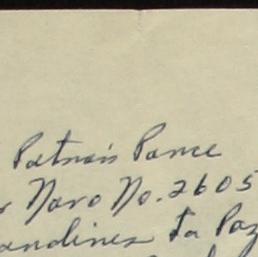 Patnais Pance
r Naro No. 2605
andines Ta Paz